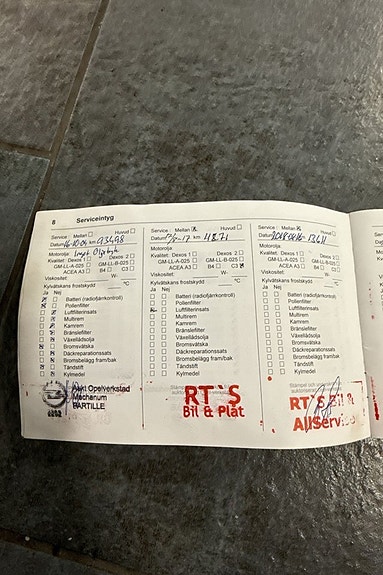 8 Serviceintyg
Service : Mellan Huvud
Datum 16-10-04 km 93498
Motorolja:
Kvalitet: Dexos 1 Dexos 2
GM-LL-A-025 GM-LL-B-025
ACEA A3 B4 C3
Viskositet: W-
Kylvätskans frostskydd °C
Ja Nej
Batteri (radiofjärrkontroll)
Pollenfilter
Luftfilterinsats
Multirem
Kamrem
Bränslefilter
Växellådsolja
Bromsvätska
Däckreparationssats
Bromsbelägg fram/bak
Tändstift
Kylmedel
Aukt Opelverkstad
Mechanum
PARTILLE
Service : Mellan Huvud
Datum km
Motorolja:
Kvalitet: Dexos 1 Dexos 2
GM-LL-A-025 GM-LL-B-025
ACEA A3 B4 C3
Viskositet: W-
Kylvätskans frostskydd °C
Ja Nej
Batteri (radiofjärrkontroll)
Pollenfilter
Luftfilterinsats
Multirem
Kamrem
Bränslefilter
Växellådsolja
Bromsvätska
Däckreparationssats
Bromsbelägg fram/bak
Tändstift
Kylmedel
RT`S
Bil & Plåt
Service : Mellan Huvud
Datum km
Motorolja:
Kvalitet: Dexos 1 Dexos 2
GM-LL-A-025 GM-LL-B-025
ACEA A3 B4 C3
Viskositet: W-
Kylvätskans frostskydd °C
Ja Nej
Batteri (radiofjärrkontroll)
Pollenfilter
Luftfilterinsats
Multirem
Kamrem
Bränslefilter
Växellådsolja
Bromsvätska
Däckreparationssats
Bromsbelägg fram/bak
Tändstift
Kylmedel
RT`S Bil &
AllService